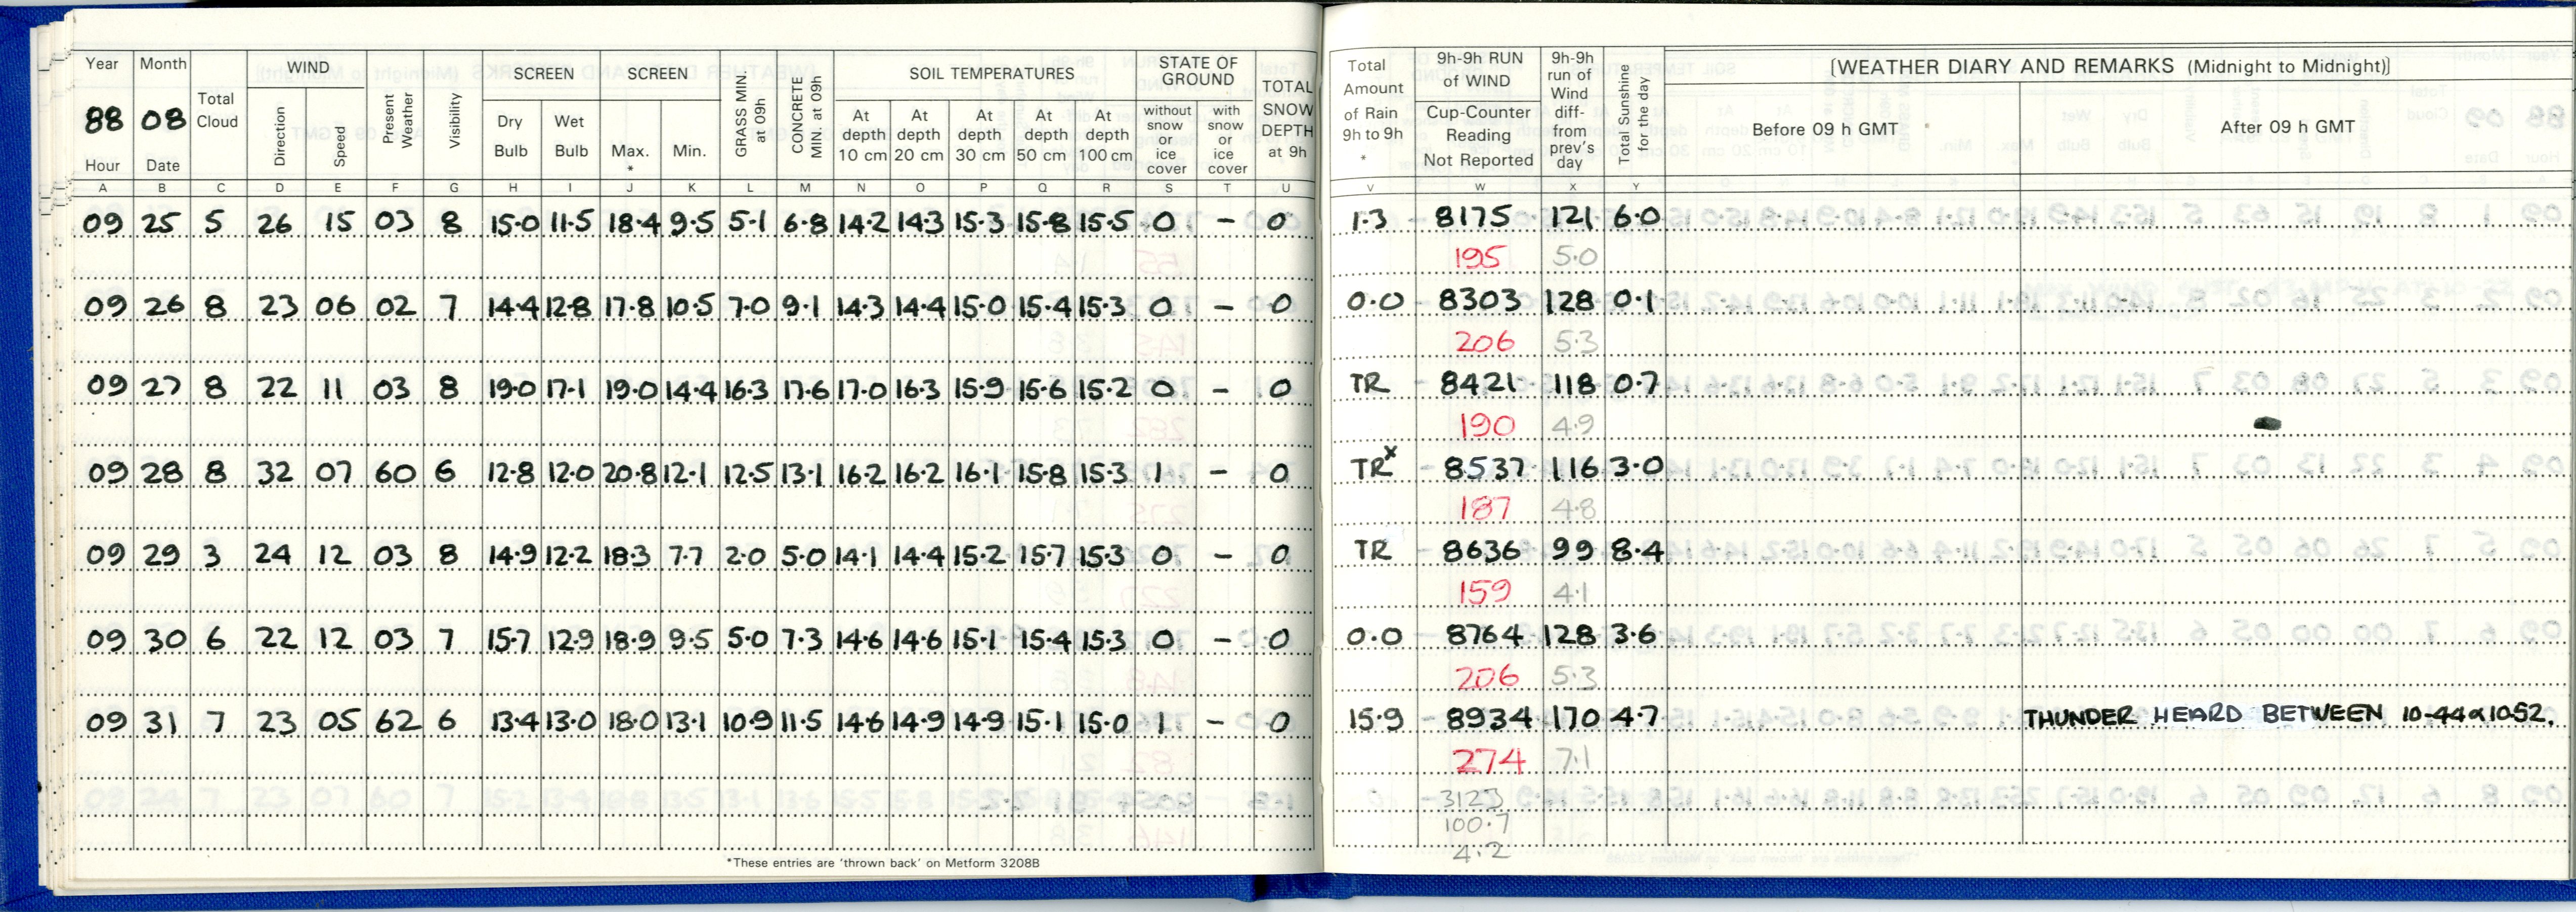 Year Month Total Cloud WIND Present Weather Visibility SCREEN SCREEN GRASS MIN. at 09h CONCRETE MIN. at 09h SOIL TEMPERATURES STATE OF GROUND TOTAL SNOW DEPTH at 9h Total Amount of Rain 9h to 9h * 9h-9h RUN of WIND 9h-9h run of Wind diff- from prev's day Total Sunshine for the day [WEATHER DIARY AND REMARKS (Midnight to Midnight)]
88 08 Direction Speed Dry Bulb Wet Bulb Max. * Min. At depth 10 cm At depth 20 cm At depth 30 cm At depth 50 cm At depth 100 cm without snow or ice cover with snow or ice cover Cup-Counter Reading Not Reported Before 09 h GMT After 09 h GMT
Hour Date
A B C D E F G H I J K L M N O P Q R S T U V W X Y
09 25 5 26 15 03 8 15.0 11.5 18.4 9.5 5.1 6.8 14.2 14.3 15.3 15.8 15.5 0 - 0 1.3 8175 121 6.0
195 5.0
09 26 8 23 06 02 7 14.4 12.8 17.8 10.5 7.0 9.1 14.3 14.4 15.0 15.4 15.3 0 - 0 0.0 8303 128 0.1
206 5.3
09 27 8 22 11 03 8 19.0 17.1 19.0 14.4 16.3 17.6 17.0 16.3 15.9 15.6 15.2 0 - 0 TR 8421 118 0.7
190 4.9
09 28 8 32 07 60 6 12.8 12.0 20.8 12.1 12.5 13.1 16.2 16.2 16.1 15.8 15.3 1 - 0 TRx 8537 116 3.0
187 4.8
09 29 3 24 12 03 8 14.9 12.2 18.3 7.7 2.0 5.0 14.1 14.4 15.2 15.7 15.3 0 - 0 TR 8636 99 8.4
159 4.1
09 30 6 22 12 03 7 15.7 12.9 18.9 9.5 5.0 7.3 14.6 14.6 15.1 15.4 15.3 0 - 0 0.0 8764 128 3.6
206 5.3
09 31 7 23 05 62 6 13.4 13.0 18.0 13.1 10.9 11.5 14.6 14.9 14.9 15.1 15.0 1 - 0 15.9 8934 170 4.7 THUNDER HEARD BETWEEN 10-44 & 10-52.
274 7.1
3123
100.7
4.2
*These entries are 'thrown back' on Metform 3208B